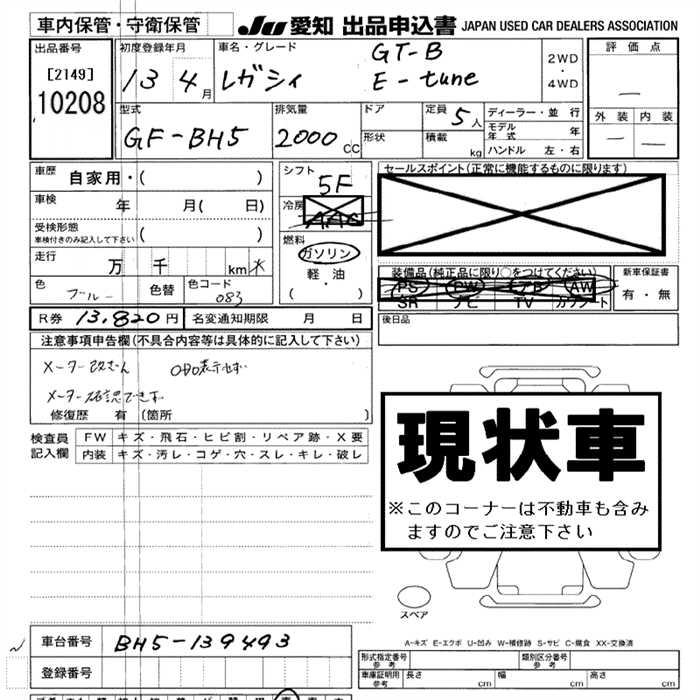 車内保管・守衛保管 JU 愛知 出品申込書 JAPAN USED CAR DEALERS ASSOCIATION
出品番号 初度登録年月 車名・グレード 評価点
[2149] 13 4月 レガシィ GT-B 2WD
10208 E-tune ・
4WD
外装 内装
型式 排気量 ドア 定員 5人 ディーラー・並行
GF-BH5 2000cc 形状 積載 kg モデル年式 年
ハンドル 左・右
車歴 自家用・( ) シフト 5F セールスポイント(正常に機能するものに限ります)
車検 年 月( 日) 冷房 AAC
受検形態
車検付きのみ記入して下さい ( ) 燃料
走行 万 千 km ガソリン 装備品(純正品に限り○をつけてください) 新車保証書
色 ブルー 色替 色コード 083 軽油 PS PW エアB AW 有・無
( ・ ) SR ナビ TV カワシート
R券 13,820円 名変通知期限 月 日 後日品
注意事項申告欄(不具合内容等は具体的に記入して下さい)
メーター改ざん ODO表示せず
メーター確認できず
修復歴 有 (箇所 )
検査員記入欄 FW キズ・飛石・ヒビ割・リペア跡・X要
内装 キズ・汚レ・コゲ・穴・スレ・キレ・破レ
現状車
※このコーナーは不動車も含み
ますのでご注意下さい
スペア
車台番号 BH5-139493 A-キズ E-エクボ U-凹み W-補修跡 S-サビ C-腐食 XX-交換済
登録番号 形式指定番号 参考 類別区分番号 参考
車庫証明用 参考 長さ cm 幅 cm 高さ cm